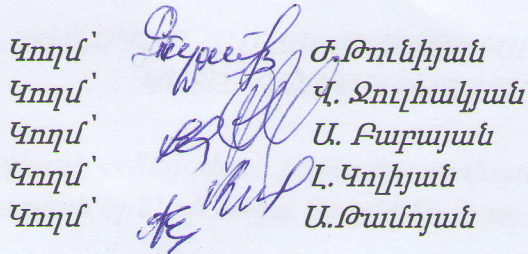 Կողմ՝ Ժ.Թունիյան
Կողմ՝ Վ. Ջուլհակյան
Կողմ՝ Ա. Բաբայան
Կողմ՝ Լ. Կոլիյան
Կողմ՝ Ա.Թամոյան